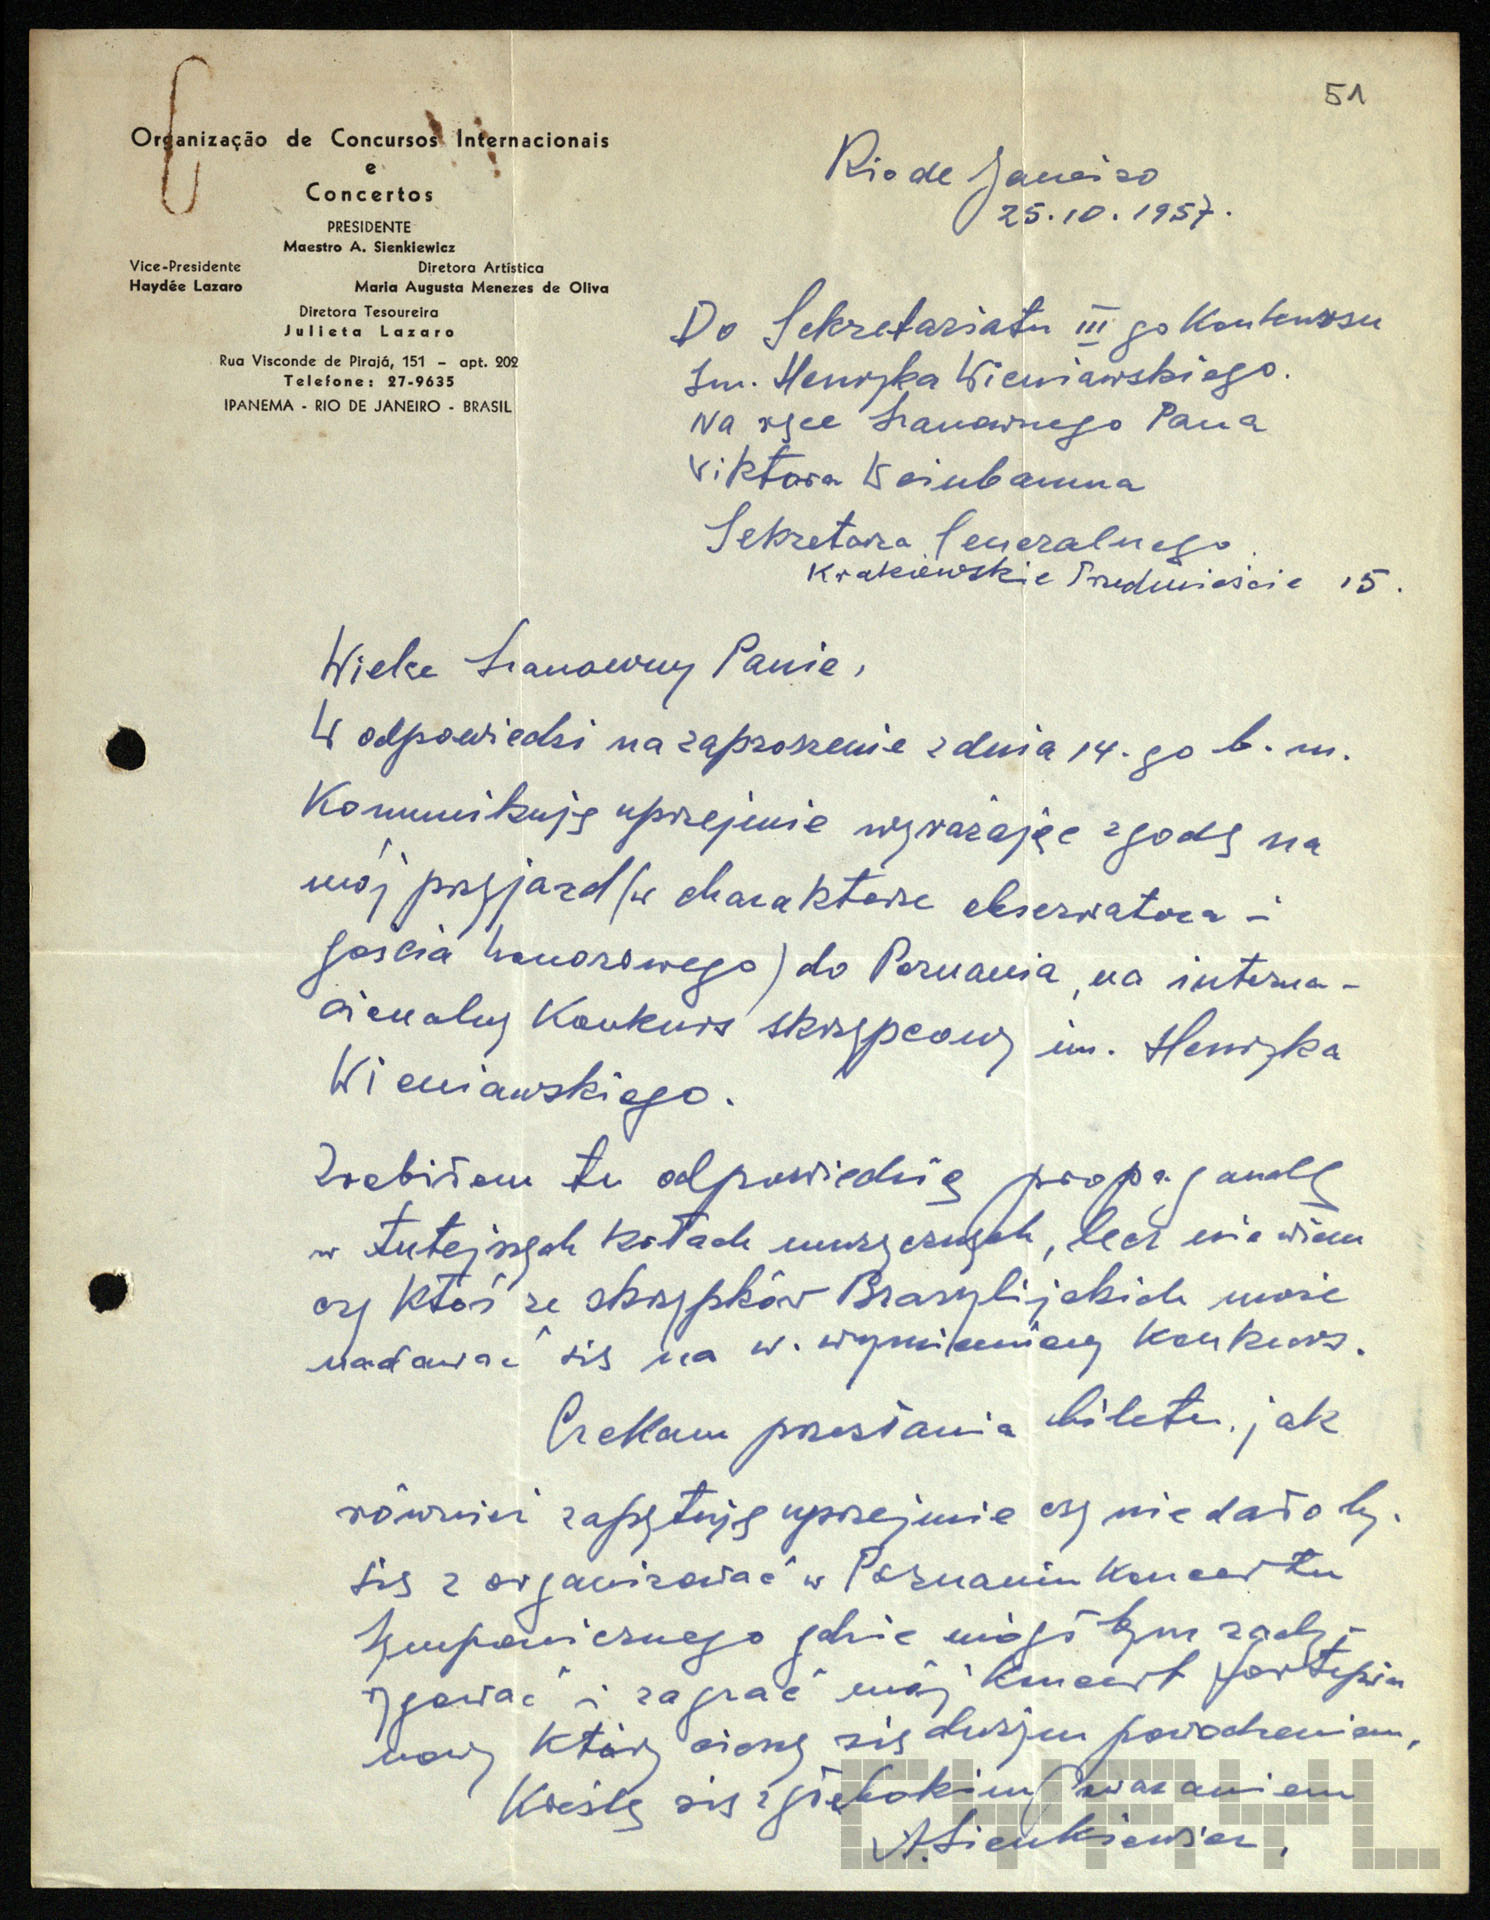 51
Organização de Concursos Internacionais
e
Concertos
PRESIDENTE
Maestro A. Sienkiewicz
Vice-Presidente Diretora Artística
Haydée Lazaro Maria Augusta Menezes de Oliva
Diretora Tesoureira
Julieta Lazaro
Rua Visconde de Pirajá, 151 - apt. 202
Telefone: 27-9635
IPANEMA - RIO DE JANEIRO - BRASIL
Rio de Janeiro
25.10.1957.
Do Sekretariatu III go Konkursu
Im. Henryka Wieniawskiego.
Na ręce Szanownego Pana
Viktora Weinbauma
Sekretarza Generalnego
Krakowskie Przedmieście 15.
Wielce Szanowny Panie,
W odpowiedzi na zaproszenie z dnia 14.go b.m.
Komunikuję uprzejmie wyrażając zgodę na
mój przyjazd (w charakterze obserwatora i
gościa honorowego) do Poznania, na interna-
cionalny Konkurs skrzypcowy im. Henryka
Wieniawskiego.
Zrobiłem tu odpowiednią propagandę
w tutejszych kołach muzycznych, lecz nie wiem
czy ktoś ze skrzypków Brazylijskich może
nadawać się na w. wymieniony Konkurs.
Czekam przesłania biletu, jak
również zapytuję uprzejmie czy nie dało by.
się z organizować w Poznaniu Koncertu
Symponicznego gdzie mógł bym zady-
rygować i zagrać mój Koncert fortepia
nowy który cieszy się dużym powodzeniem,
Kreślę się z głębokim poważaniem
A. Sienkiewicz,